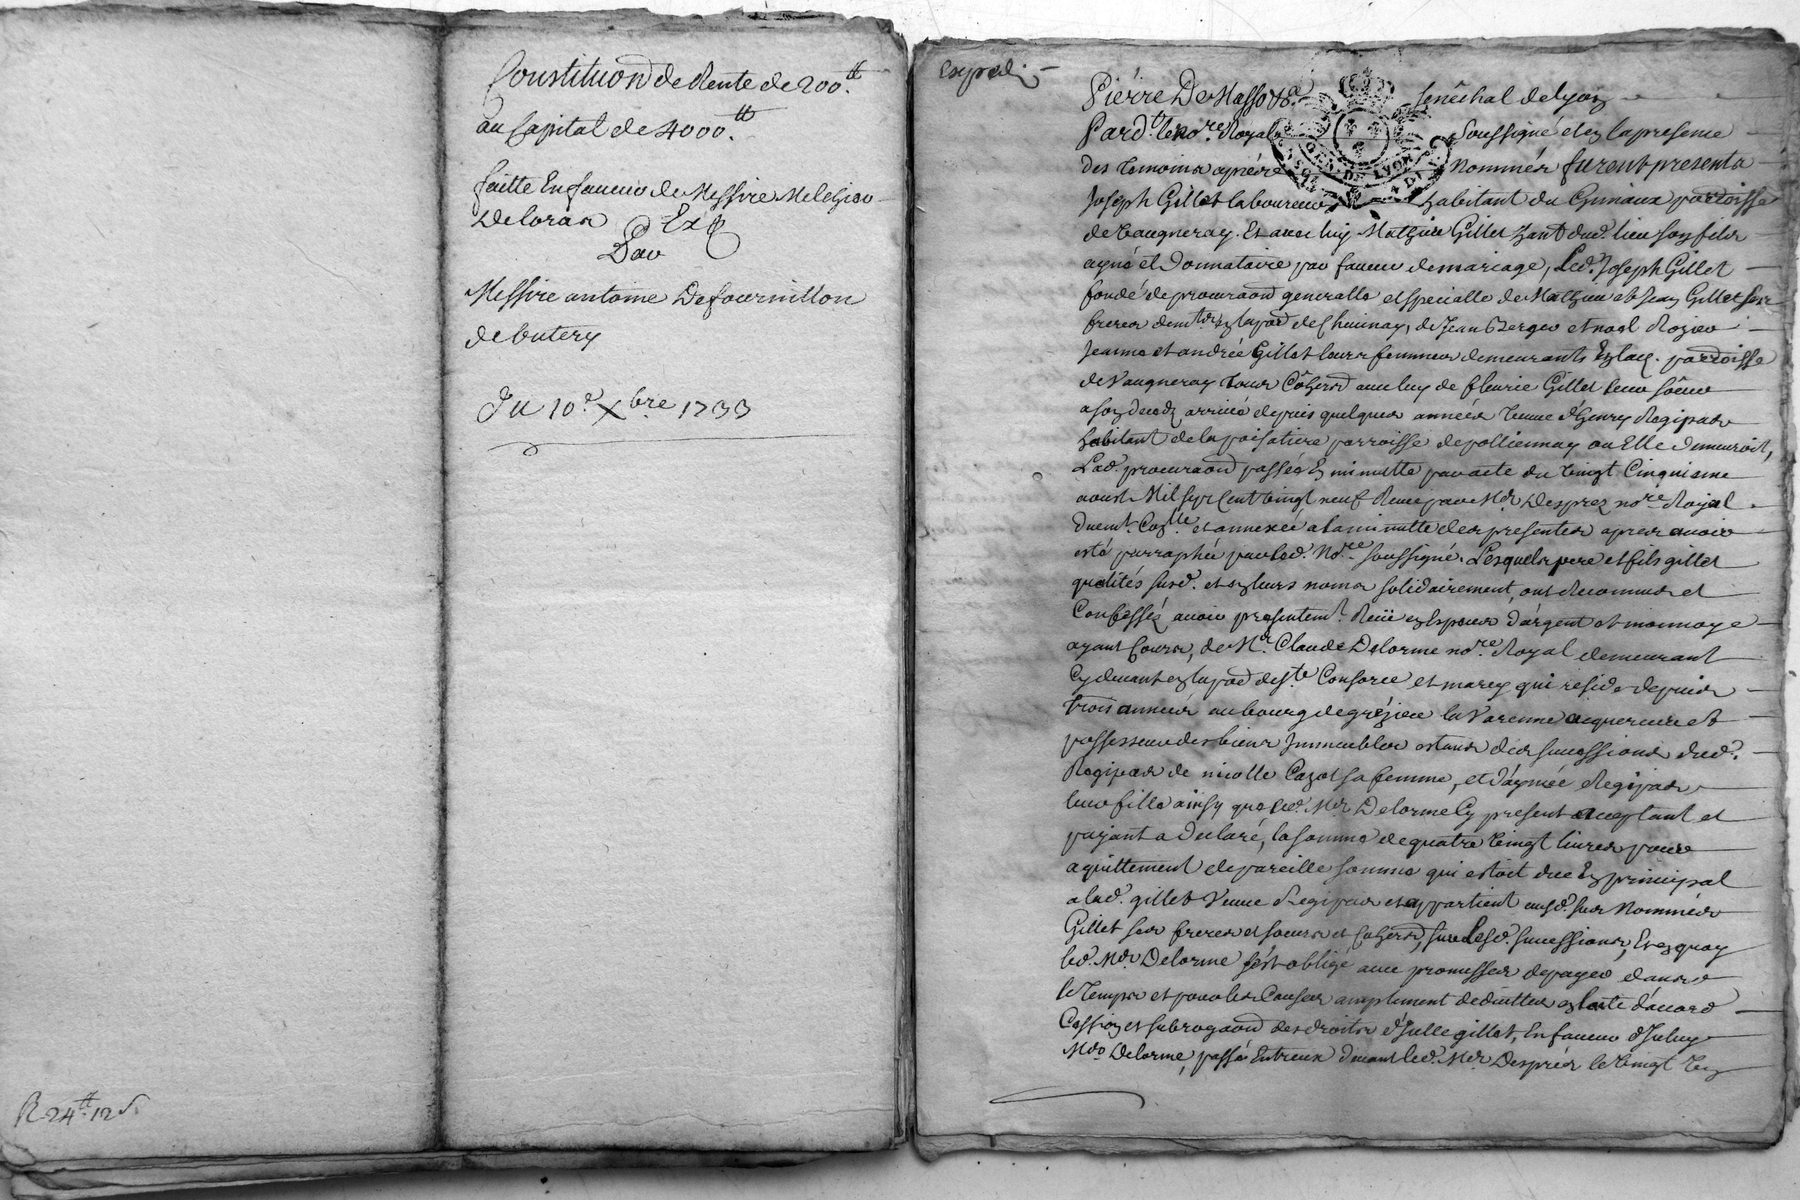 Constitu͠o͠n de Rente de 200.tt
au Capital de 4000.tt
faitte En faueur de Messire Melchior
Deloras Exp
Par
Messire antoine Defournillon
debutery
Du 10e Xbre 1733
R 24tt 12s
Exped.
Pierre De Masso &c. senéchal de lyon
Pard.t le no.re Royal Soussigné et en la presence
des temoins aprés Nommés furent presents
Joseph Gillet laboureur habitant du parroisse
de Vaugneray. Et avec luy Mathieu Gillet hant dud. lieu son fils
ayné et Donnataire par faueur de mariage, Led. Joseph Gillet
fondé de procura͠o͠n generalle et specialle de Mathieu et Jean Gillet ses
freres dem.ts en la p͠a͠r de Cheuinay, de Jean Berger et noel Rozier
Jeanne et andrée Gillet leurs femmes demeurants parroisse
de Vaugneray tous auec luy de fleurie Gillet leur sœur
a son deceds arriué depuis quelques années veuue d'henry Regipas
habitant de la poisatiere parroisse de polliennay ou Elle demeuroit,
Lad. procura͠o͠n passée En minutte par acte du vingt Cinquieme
aoust Mil sept Cent vingt neuf Receu par Mer Desprez no.re Royal
Duem.t Con.llé et annexée a la minutte des presentes apres auoir
esté parraphée par led. No.re soussigné. Lesquels pere et fils gillet
qualités susd. et en leurs noms solidairement, ont Reconnus et
Confessés auoir presentem.t Receu en Especes d'argent et monnoye
ayant Cours, de M.r Claude Delorme no.re Royal demeurant
Cy deuant en la p͠a͠r de S.te Consorce et marcy qui reside depuis
trois années au bourg de grézieu la Varenne acquereur et
possesseur des biens Immeubles estants des successions dud.
Regipas de nicolle Cazot sa femme, et d'aymée Regipas
leur fille ainsy que led. Mer Delorme Cy present acceptant et
payant a declaré, la somme de quatre vingt liures pour
aquittement de pareille somme qui estoit due En principal
a lad. gillet Veuue Regipas et appartient ausd. sus Nommés
Gillet ses freres et sœurs et sur Lesd. successions, En quoy
led. Mer Delorme s'est obligé auec promesses de payer dans
le temps et pour les Causes amplement deduittes en l'acte d'acord
Cession et subroga͠o͠n des droits d'Icelle gillet, En faueur d'Iceluy
Mer Delorme, passé Entreux deuant led. Mer Després le vingt